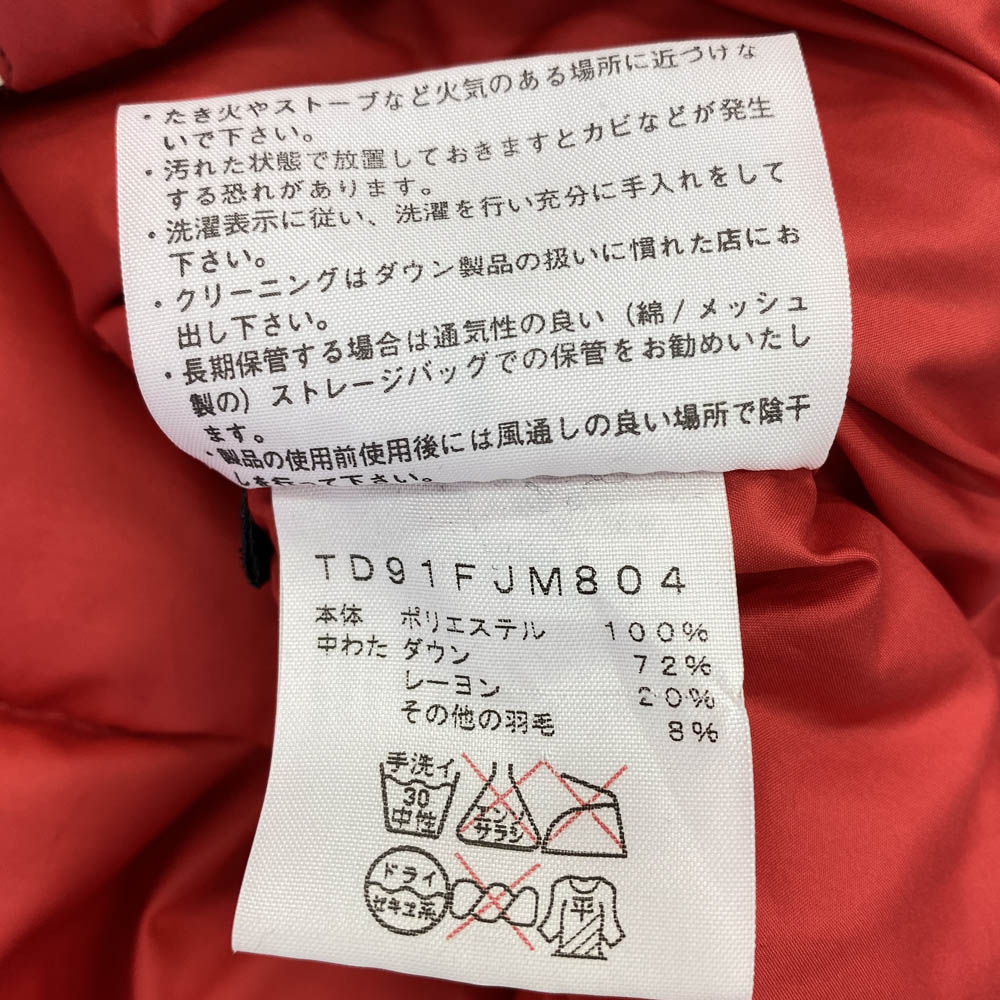 ・たき火やストーブなど火気のある場所に近づけな
いで下さい。
・汚れた状態で放置しておきますとカビなどが発生
する恐れがあります。
・洗濯表示に従い、洗濯を行い充分に手入れをして
下さい。
・クリーニングはダウン製品の扱いに慣れた店にお
出し下さい。
・長期保管する場合は通気性の良い（綿/メッシュ
製の）ストレージバッグでの保管をお勧めいたし
ます。
・製品の使用前使用後には風通しの良い場所で陰干
しを行って下さい。
TD91FJM804
本体 ポリエステル 100%
中わた ダウン 72%
レーヨン 20%
その他の羽毛 8%
手洗イ
30
中性
エンソ
サラシ
ドライ
セキユ系
平